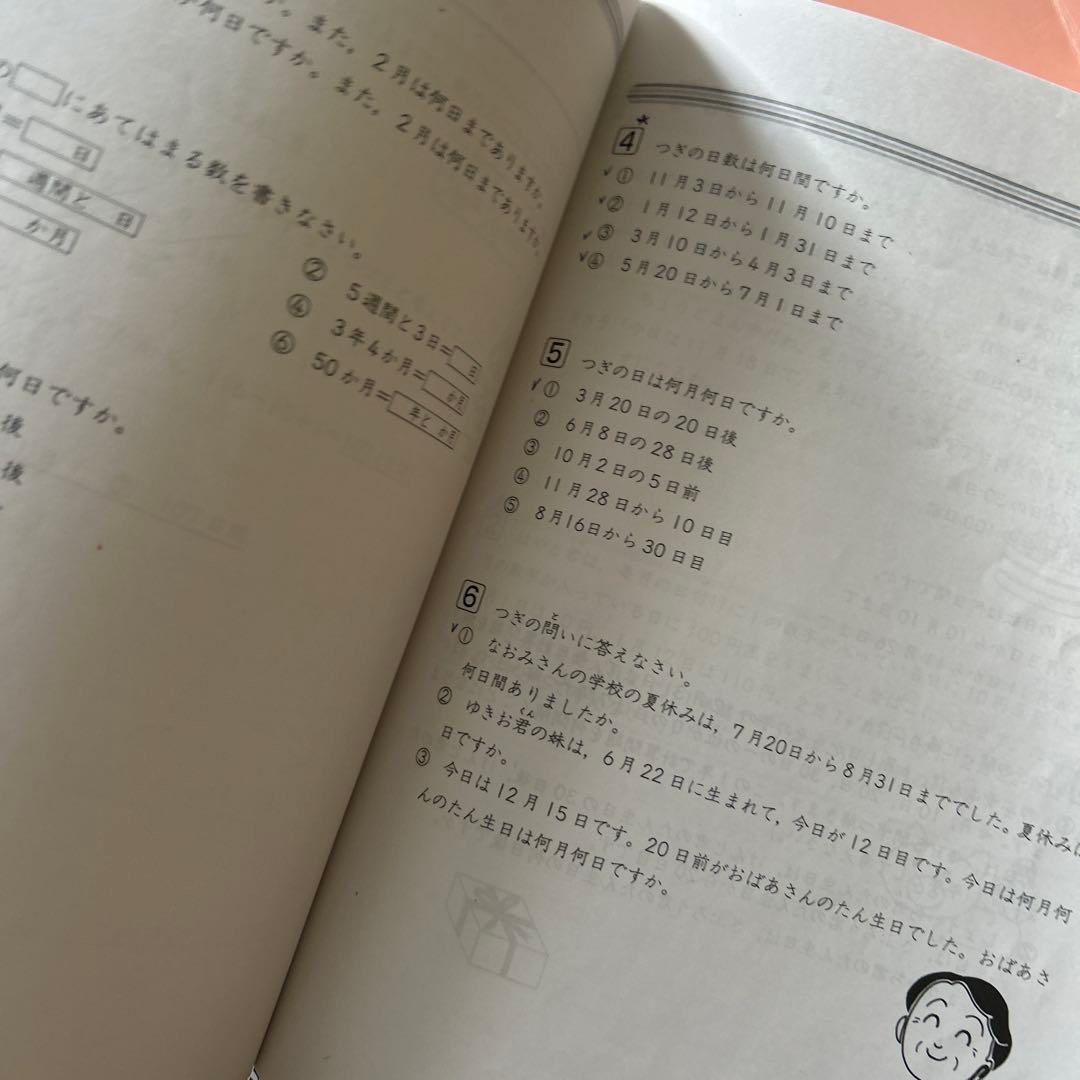 。また。2月は何日までありますか。
何日ですか。また。2月は何日までありますか。
の□にあてはまる数を書きなさい。
=□日
週間と 日
か月
② 5週間と3日=□日
④ 3年4か月=□か月
⑥ 50か月=□年と か月
何日ですか。
後
後
4 つぎの日数は何日間ですか。
① 11月3日から11月10日まで
② 1月12日から1月31日まで
③ 3月10日から4月3日まで
④ 5月20日から7月1日まで
5 つぎの日は何月何日ですか。
① 3月20日の20日後
② 6月8日の28日後
③ 10月2日の5日前
④ 11月28日から10日目
⑤ 8月16日から30日目
6 つぎの問いに答えなさい。
① なおみさんの学校の夏休みは，7月20日から8月31日まででした。夏休みは
何日間ありましたか。
② ゆきお君の妹は，6月22日に生まれて，今日が12日目です。今日は何月何
日ですか。
③ 今日は12月15日です。20日前がおばあさんのたん生日でした。おばあさ
んのたん生日は何月何日ですか。